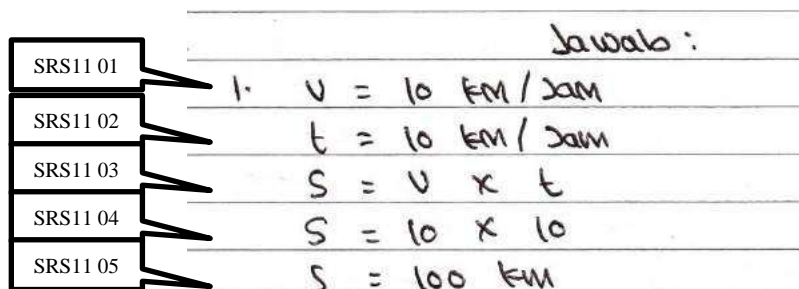 Jawab :
SRS11 01
1. V = 10 km / Jam
SRS11 02
t = 10 km / Jam
SRS11 03
S = V x t
SRS11 04
S = 10 x 10
SRS11 05
S = 100 km